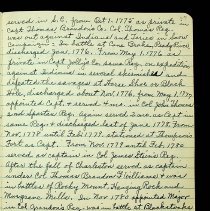 served in S.C. from Oct. 1-1775 as private in
Capt. Thomas Brandon's Co. Col. Thomas' Reg.
was out against Indians and Tories in Snow
Campaign: In battle at Cane Brake, Reedy River
discharged Jan. 1776. From May 1-1776 as
private in Capt. Jolly's Co. same Reg. on expedition
against Indians in several skirmishes and
defeated the savages at Horse Shoe or Black
Hole, discharged about Nov. 1776. From May 1, 1777
appointed Capt. & served 4 mos. in Col. John Thomas'
Reg. Again served 2 mos. as Capt. in
same Reg. & discharged last of June 1778. From
Nov. 1778 until Feb. 1779, stationed at Thompsons
Fort as Capt. From Nov. 1779 until Feb. 1780
served as captain in Col. James Steen's Reg.
After the fall of Charleston served as captain
under Cols. Thomas Brandon & Williams & was
in battles of Rocky Mount, Hanging Rock and
Musgroves Mills. In Nov. 1780 appointed Major
in Col. Brandon's Reg., was in battle at Blackstocks